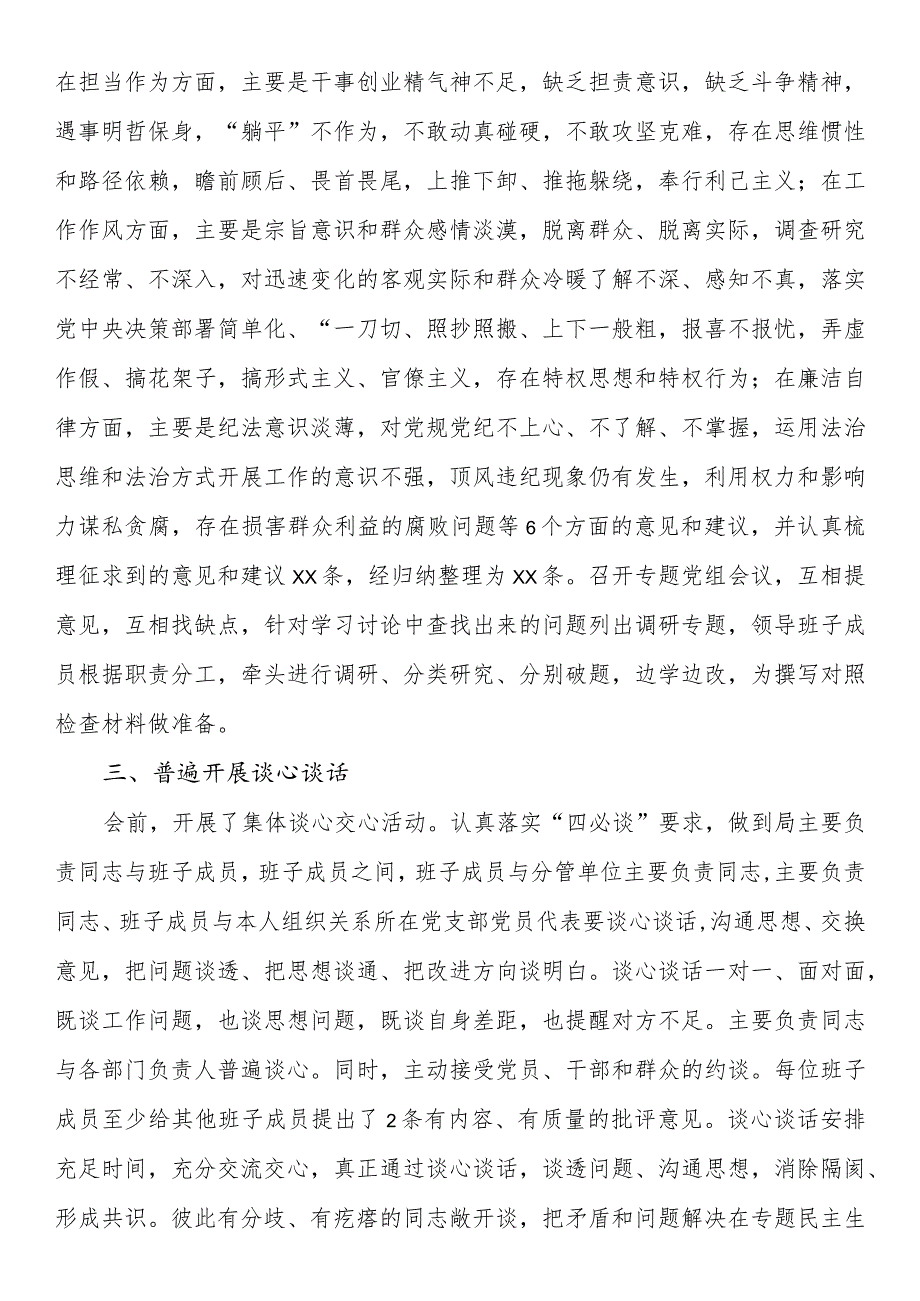 在担当作为方面，主要是干事创业精气神不足，缺乏担责意识，缺乏斗争精神，
遇事明哲保身，“躺平”不作为，不敢动真碰硬，不敢攻坚克难，存在思维惯性
和路径依赖，瞻前顾后、畏首畏尾，上推下卸、推拖躲绕，奉行利己主义；在工
作作风方面，主要是宗旨意识和群众感情淡漠，脱离群众、脱离实际，调查研究
不经常、不深入，对迅速变化的客观实际和群众冷暖了解不深、感知不真，落实
党中央决策部署简单化、“一刀切、照抄照搬、上下一般粗，报喜不报忧，弄虚
作假、搞花架子，搞形式主义、官僚主义，存在特权思想和特权行为；在廉洁自
律方面，主要是纪法意识淡薄，对党规党纪不上心、不了解、不掌握，运用法治
思维和法治方式开展工作的意识不强，顶风违纪现象仍有发生，利用权力和影响
力谋私贪腐，存在损害群众利益的腐败问题等6个方面的意见和建议，并认真梳
理征求到的意见和建议XX条，经归纳整理为XX条。召开专题党组会议，互相提
意见，互相找缺点，针对学习讨论中查找出来的问题列出调研专题，领导班子成
员根据职责分工，牵头进行调研、分类研究、分别破题，边学边改，为撰写对照
检查材料做准备。
三、普遍开展谈心谈话
会前，开展了集体谈心交心活动。认真落实“四必谈”要求，做到局主要负
责同志与班子成员，班子成员之间，班子成员与分管单位主要负责同志,主要负责
同志、班子成员与本人组织关系所在党支部党员代表要谈心谈话,沟通思想、交换
意见，把问题谈透、把思想谈通、把改进方向谈明白。谈心谈话一对一、面对面，
既谈工作问题，也谈思想问题，既谈自身差距，也提醒对方不足。主要负责同志
与各部门负责人普遍谈心。同时，主动接受党员、干部和群众的约谈。每位班子
成员至少给其他班子成员提出了2条有内容、有质量的批评意见。谈心谈话安排
充足时间，充分交流交心，真正通过谈心谈话，谈透问题、沟通思想，消除隔阂、
形成共识。彼此有分歧、有疙瘩的同志敞开谈，把矛盾和问题解决在专题民主生